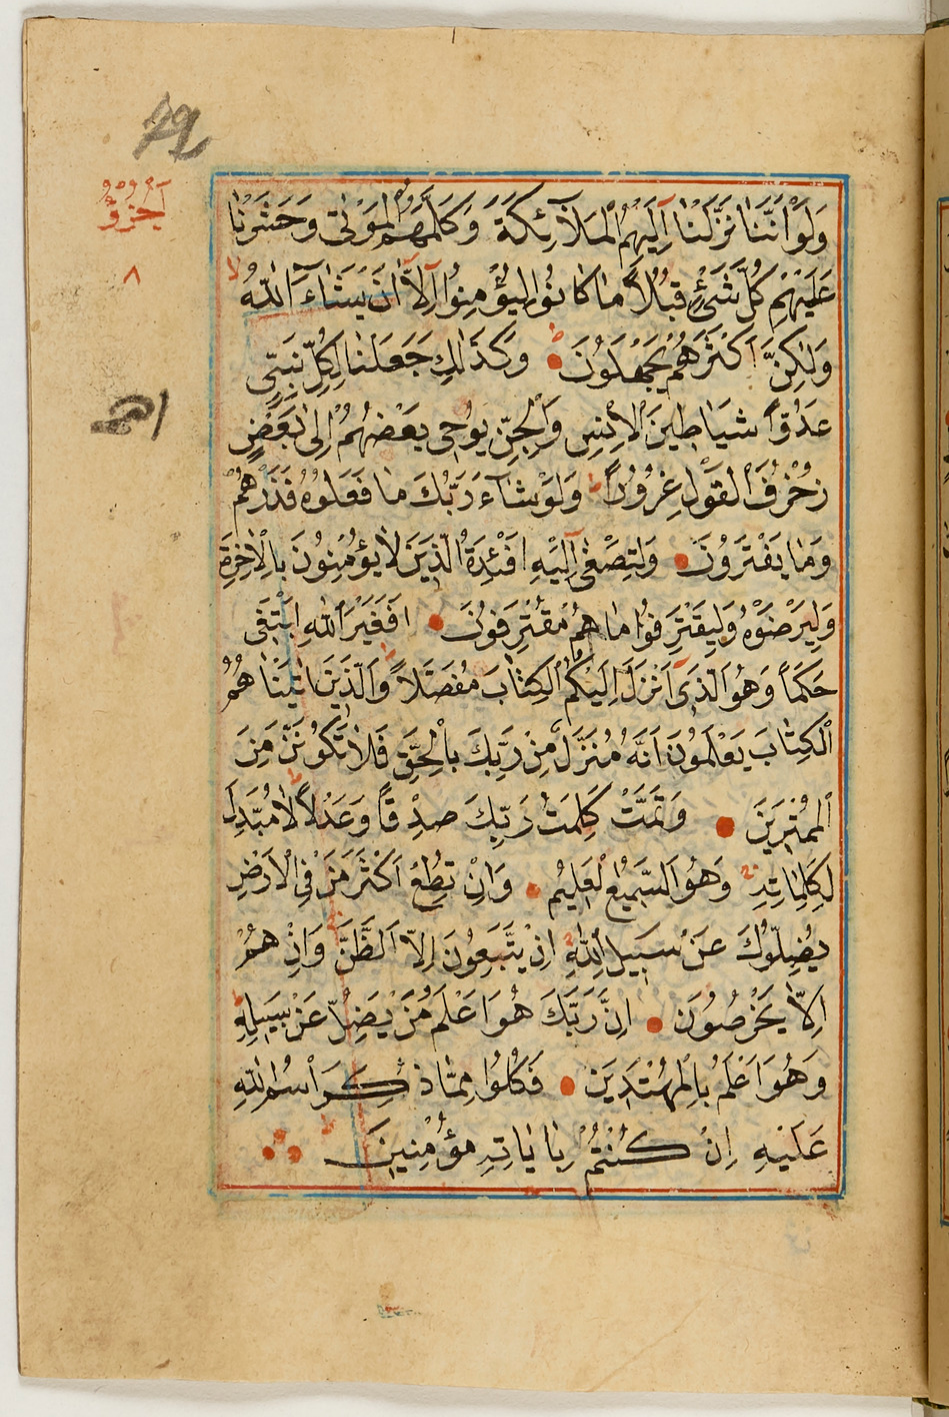 وَلَوْ اَنَّنَا نَزَّلْنَا اِلَيْهِمُ الْمَلٰٓائِكَةَ وَكَلَّمَهُمُ الْمَوْتٰى وَحَشَرْنَا
عَلَيْهِمْ كُلَّ شَىْءٍ قُبُلًا مَا كَانُوا لِيُؤْمِنُوا اِلَّا اَنْ يَشَاءَ اللّٰهُ
وَلٰكِنَّ اَكْثَرَهُمْ يَجْهَلُونَ وَكَذٰلِكَ جَعَلْنَا لِكُلِّ نَبِىٍّ
عَدُوًّا شَيَاطِينَ الْاِنْسِ وَالْجِنِّ يُوحِى بَعْضُهُمْ اِلٰى بَعْضٍ
زُخْرُفَ الْقَوْلِ غُرُورًا وَلَوْ شَاءَ رَبُّكَ مَا فَعَلُوهُ فَذَرْهُمْ
وَمَا يَفْتَرُونَ وَلِتَصْغٰى اِلَيْهِ اَفْئِدَةُ الَّذِينَ لَا يُؤْمِنُونَ بِالْاٰخِرَةِ
وَلِيَرْضَوْهُ وَلِيَقْتَرِفُوا مَا هُمْ مُقْتَرِفُونَ اَفَغَيْرَ اللّٰهِ اَبْتَغِى
حَكَمًا وَهُوَ الَّذِى اَنْزَلَ اِلَيْكُمُ الْكِتَابَ مُفَصَّلًا وَالَّذِينَ اٰتَيْنَاهُمُ
الْكِتَابَ يَعْلَمُونَ اَنَّهُ مُنَزَّلٌ مِنْ رَبِّكَ بِالْحَقِّ فَلَا تَكُونَنَّ مِنَ
الْمُمْتَرِينَ وَتَمَّتْ كَلِمَتُ رَبِّكَ صِدْقًا وَعَدْلًا لَا مُبَدِّلَ
لِكَلِمَاتِهِ وَهُوَ السَّمِيعُ الْعَلِيمُ وَاِنْ تُطِعْ اَكْثَرَ مَنْ فِى الْاَرْضِ
يُضِلُّوكَ عَنْ سَبِيلِ اللّٰهِ اِنْ يَتَّبِعُونَ اِلَّا الظَّنَّ وَاِنْ هُمْ
اِلَّا يَخْرُصُونَ اِنَّ رَبَّكَ هُوَ اَعْلَمُ مَنْ يَضِلُّ عَنْ سَبِيلِهِ
وَهُوَ اَعْلَمُ بِالْمُهْتَدِينَ فَكُلُوا مِمَّا ذُكِرَ اسْمُ اللّٰهِ
عَلَيْهِ اِنْ كُنْتُمْ بِاٰيَاتِهِ مُؤْمِنِينَ
٨